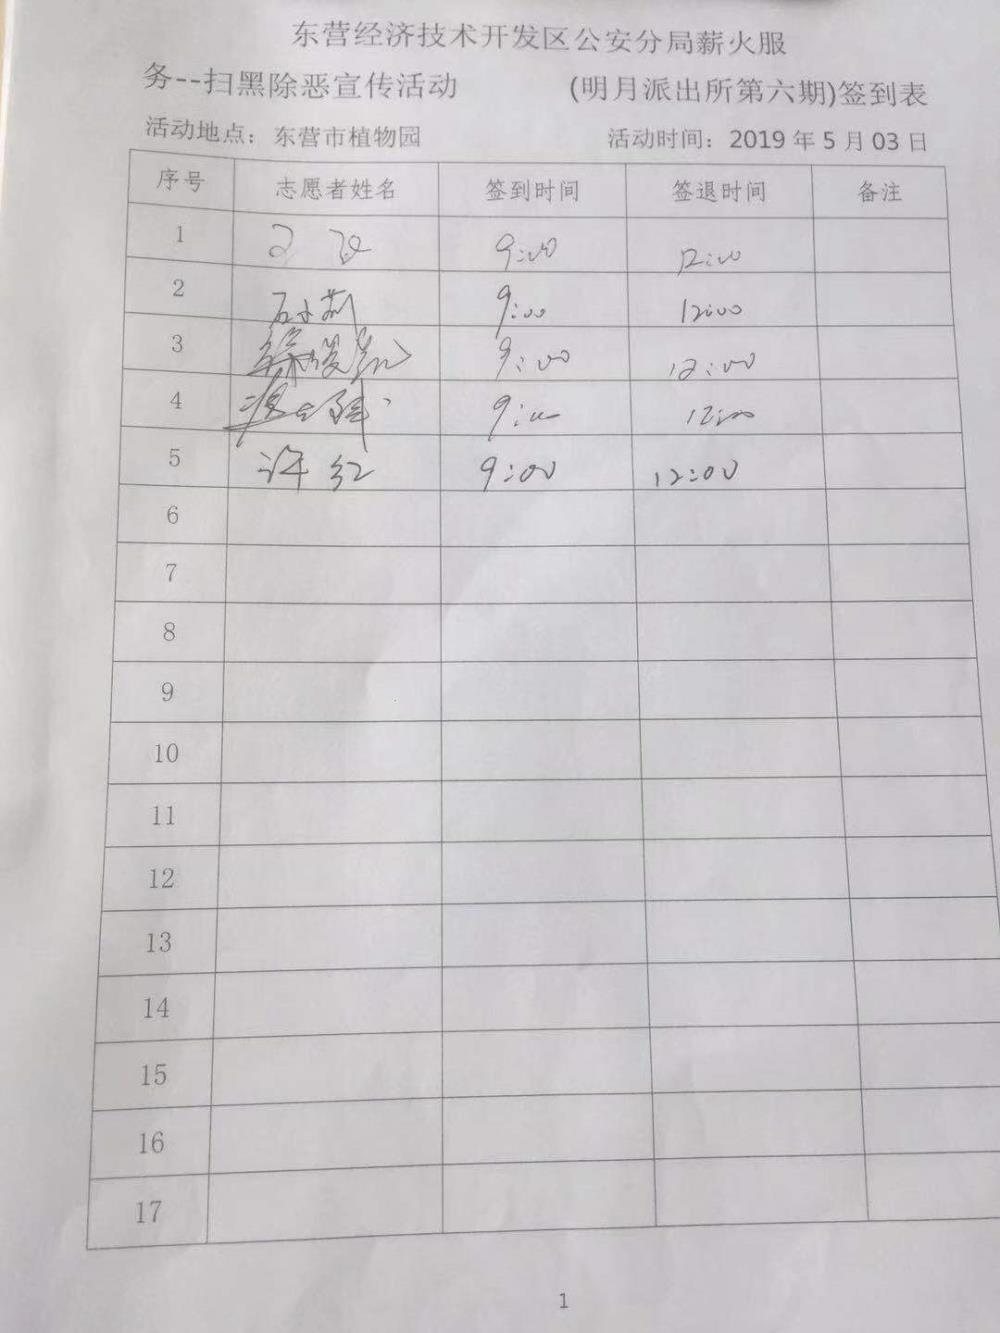 东营经济技术开发区公安分局薪火服
务--扫黑除恶宣传活动 (明月派出所第六期)签到表
活动地点：东营市植物园 活动时间：2019 年 5 月 03 日
序号 志愿者姓名 签到时间 签退时间 备注
1 9:00 12:00
2 9:00 12:00
3 9:00 12:00
4 9:00 12:00
5 许红 9:00 12:00
6
7
8
9
10
11
12
13
14
15
16
17
1